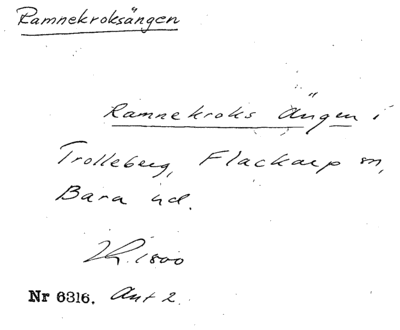 Ramnekroksängen
Ramnekroks Ängen i
Trolleberg, Flackarp sn,
Bara hd.
1800
Nr 6316. Ant 2.